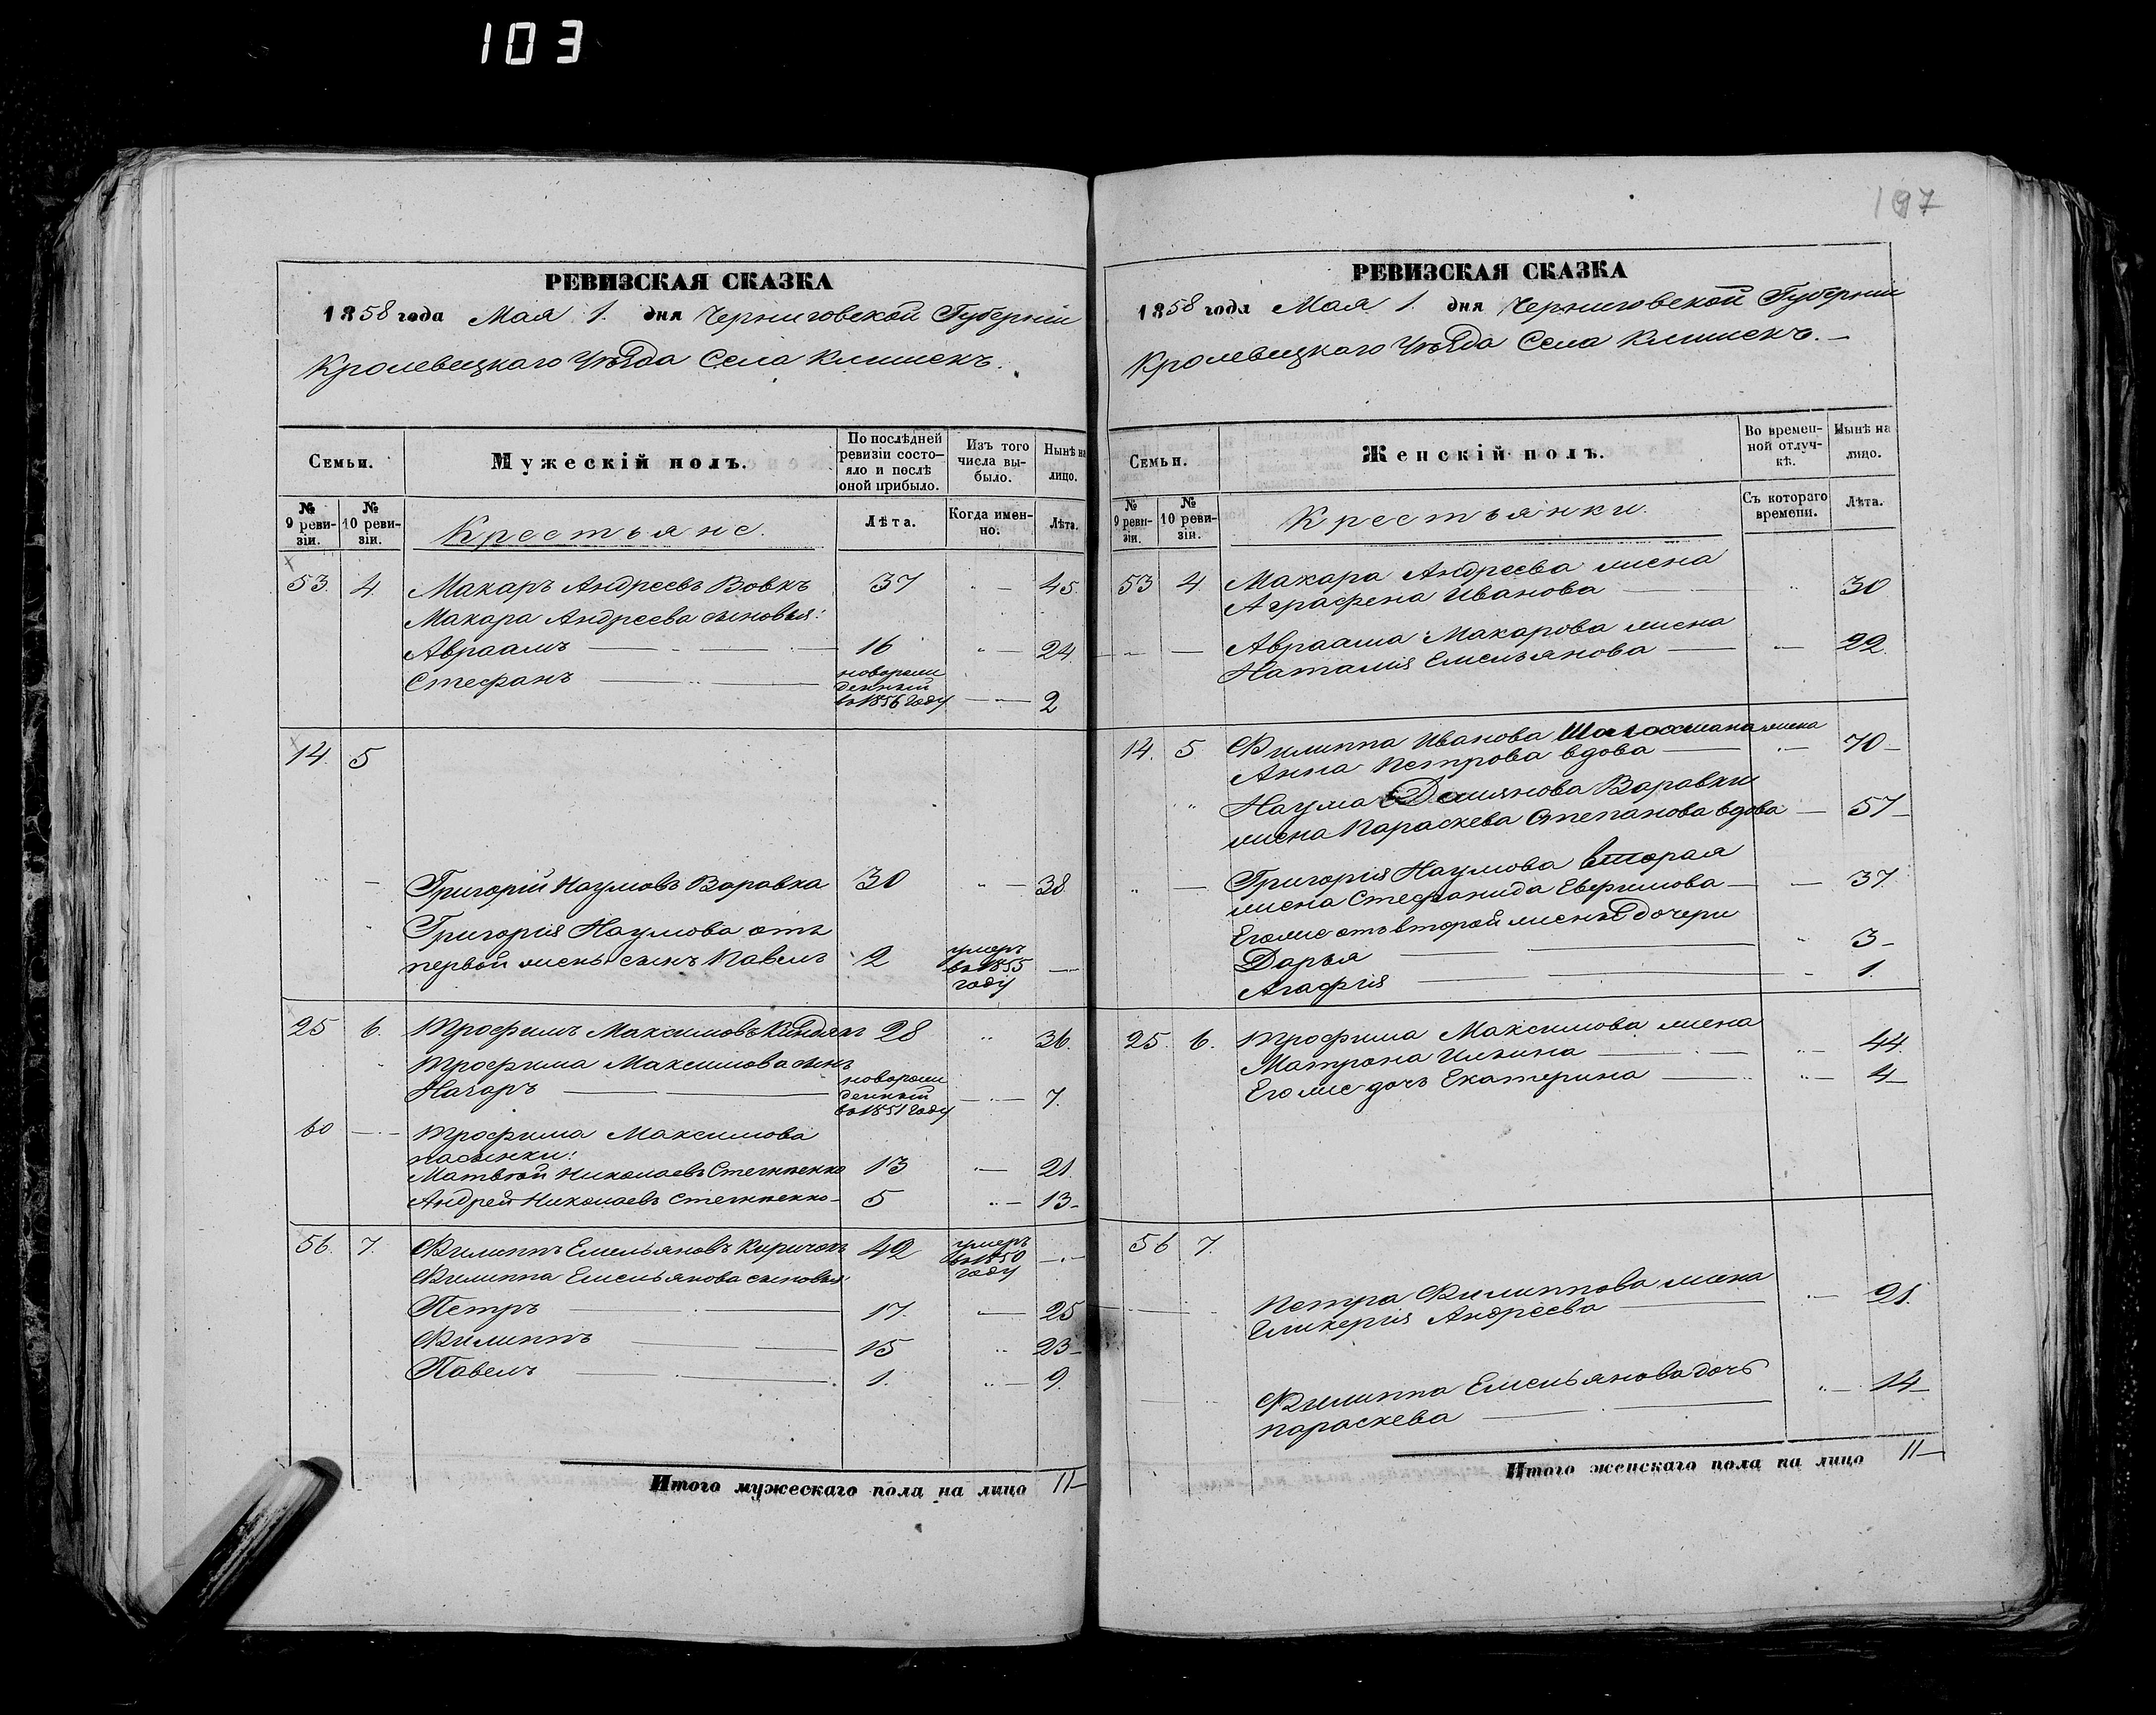 103
197
РЕВИЗСКАЯ СКАЗКА
1858 года Мая 1. дня Черниговской Губерніи
Кролевецкаго Уѣзда Села Клишекъ.
Семьи.
Мужескій полъ.
По послѣдней ревизіи состояло и послѣ оной прибыло.
Изъ того числа выбыло.
Нынѣ на лицо.
№ 9 ревизіи.
№ 10 ревизіи.
Крестьяне.
Лѣта.
Когда именно.
Лѣта.
53. 4. Макаръ Андреевъ Вовкъ 37 45.
Макара Андреева сыновья:
Авраамъ 16 24.
Стефанъ новорожденный въ 1856 году 2
14. 5
Григорій Наумовъ Варавка 30 38
Григорія Наумова отъ
первой жены сынъ Павелъ 2 умеръ въ 1855 году
25 6. Трофимъ Максимовъ 28 36.
Трофима Максимова сынъ
Назаръ новорожденный въ 1851 году 7.
60 Трофима Максимова
пасынки:
Матвѣй Николаевъ 13 21.
Андрей Николаевъ 5 13
56. 7. Филиппъ Емельяновъ Киричокъ 42 умеръ въ 1850 году
Филиппа Емельянова сыновья:
Петръ 17. 25
Филиппъ 15 23
Павелъ 1. 9.
Итого мужескаго пола на лицо 11
РЕВИЗСКАЯ СКАЗКА
1858 года Мая 1. дня Черниговской Губерніи
Кролевецкаго Уѣзда Села Клишекъ.
Семьи.
Женскій полъ.
Во временной отлучкѣ.
Нынѣ на лицо.
№ 9 ревизіи.
№ 10 ревизіи.
Крестьянки.
Съ котораго времени.
Лѣта.
53 4. Макара Андреева жена
Аграфена Иванова 30
Авраама Макарова жена
Наталія Емельянова 22.
14. 5 Филиппа Иванова жена
Анна Петрова вдова 70
Наума Демьянова Варавки
жена Параскева Степанова вдова 57
Григорія Наумова вторая
жена Стефанида Евфимова 37.
Его же отъ второй жены дочери
Дарья 3
Агафія 1.
25. 6. Трофима Максимова жена
Матрона Ильина 44.
Его же дочь Екатерина 4
56 7.
Петра Филиппова жена
Гликерія Андреева 21.
Филиппа Емельянова дочь
Параскева 14
Итого женскаго пола на лицо 11